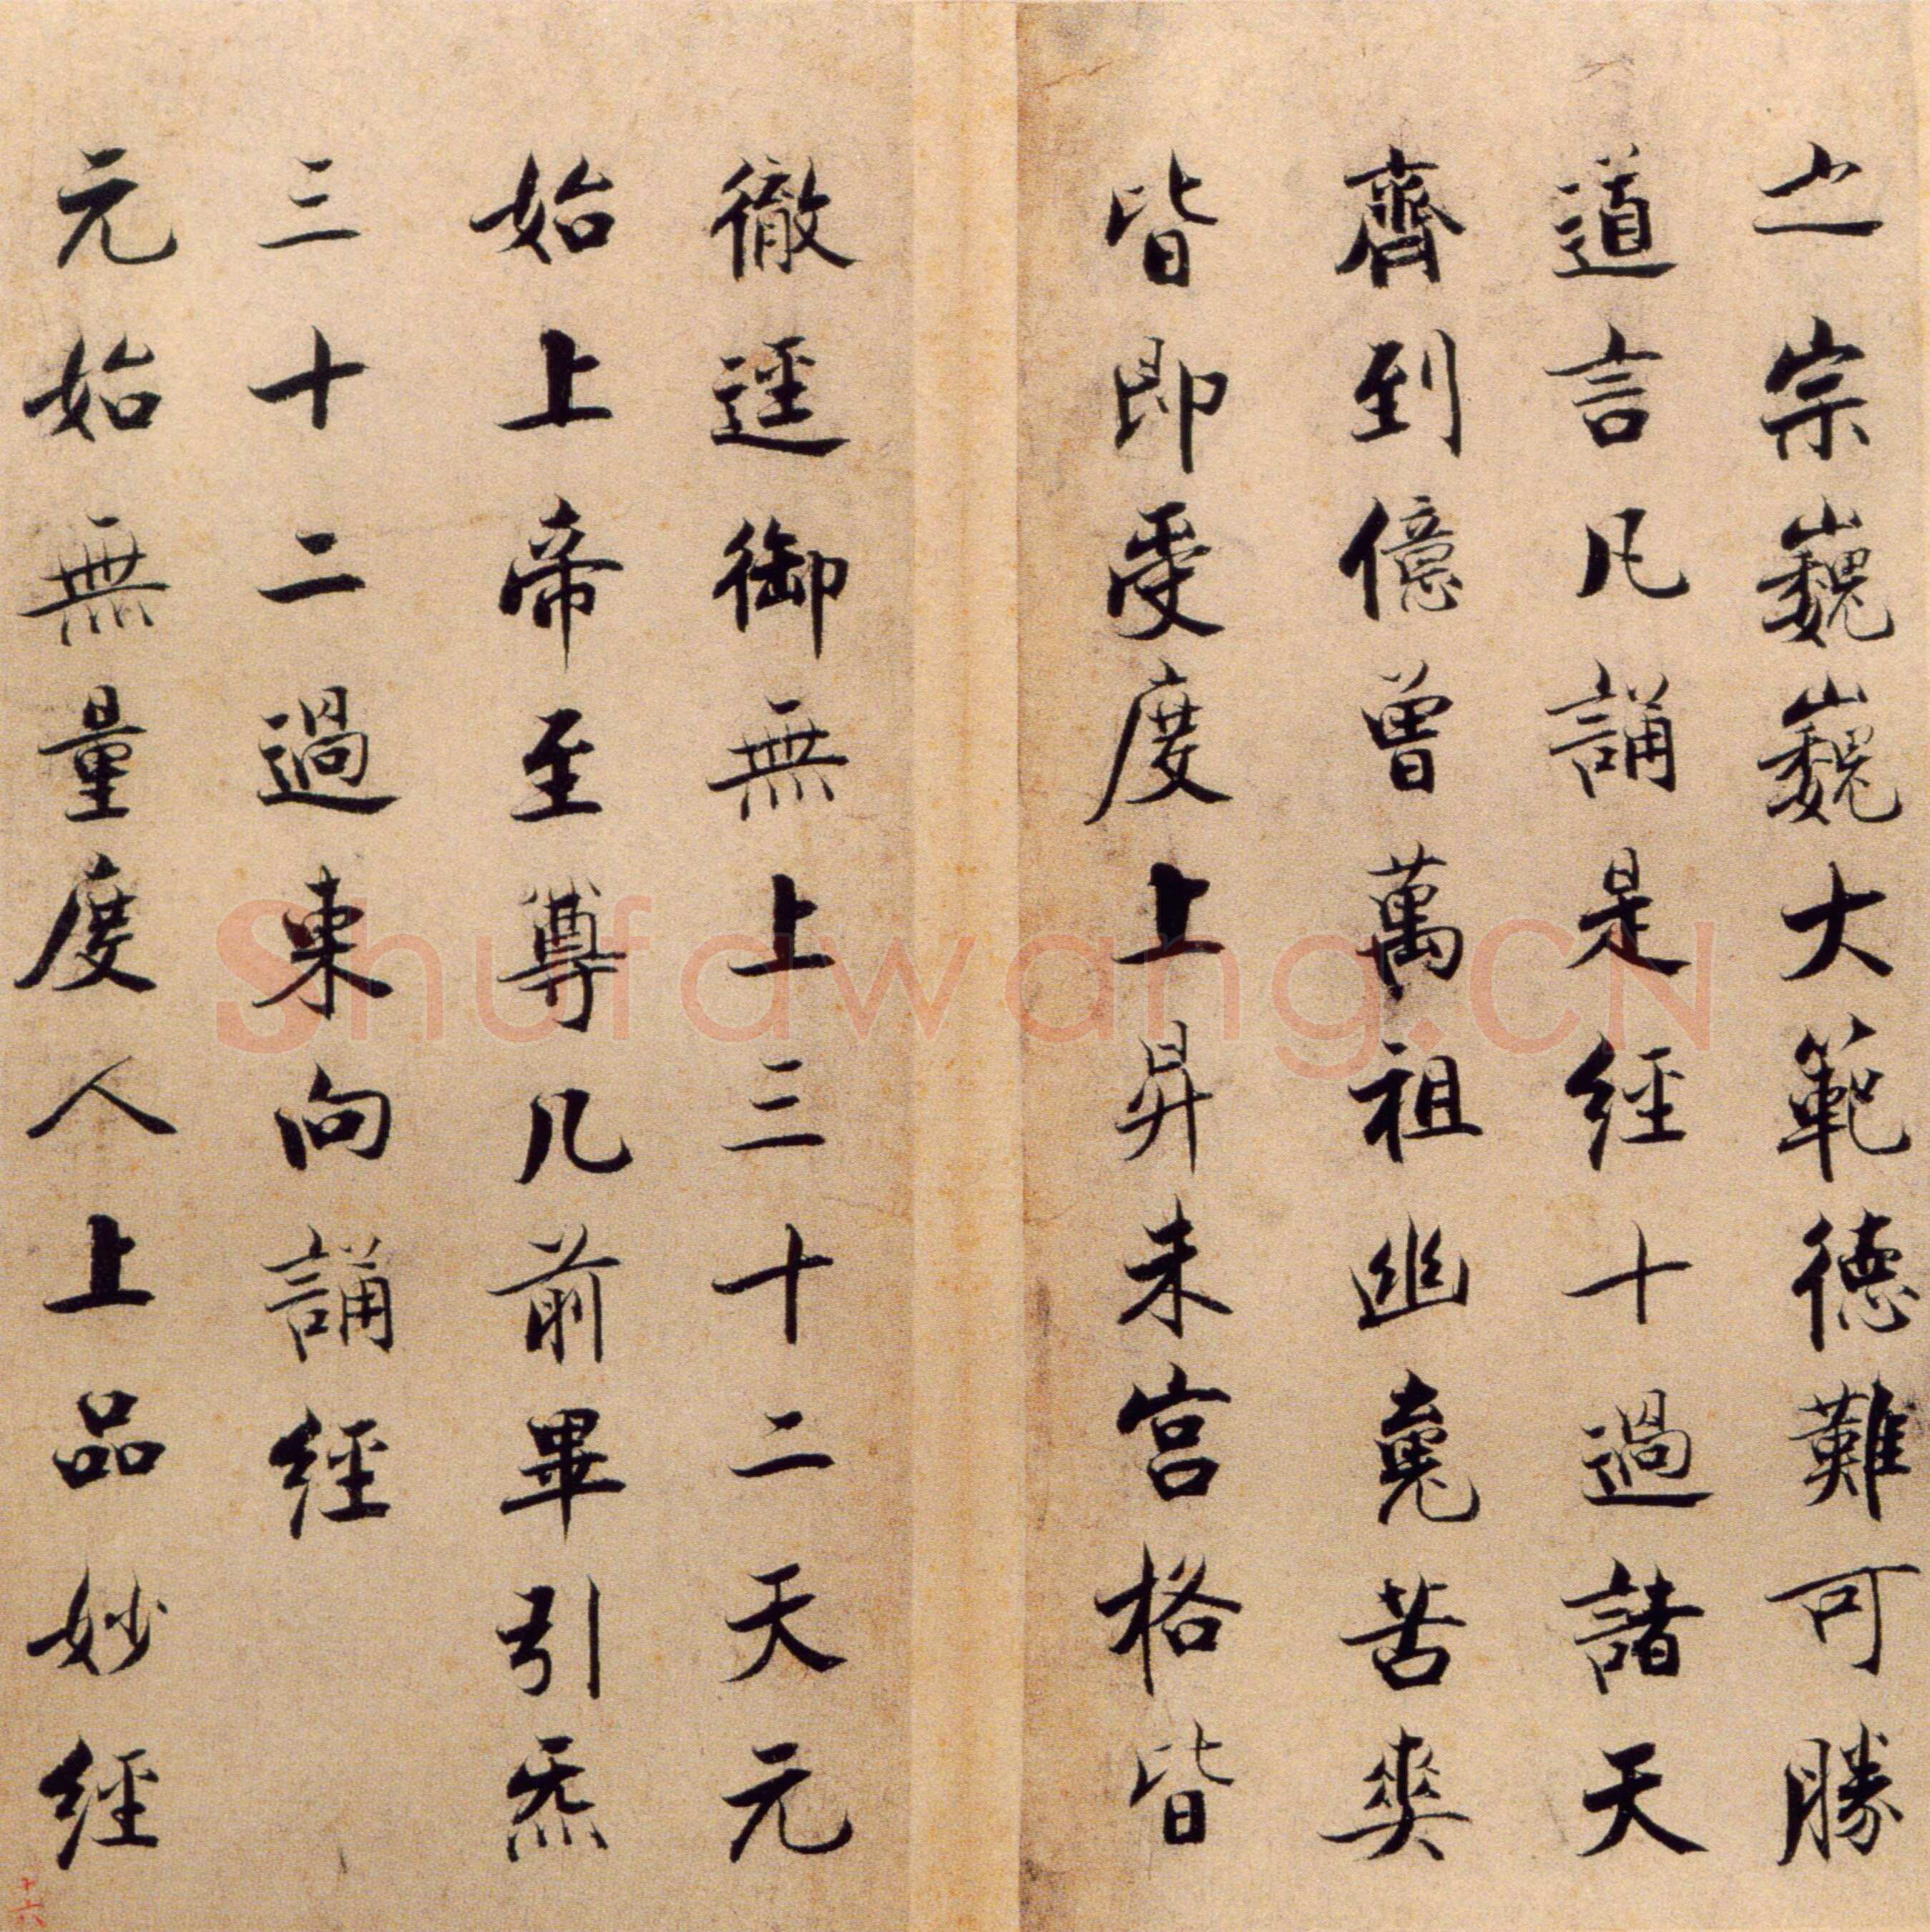 之宗巍巍大範徳難可勝
道言凡誦是經十過諸天
齊到億曾萬祖幽䰟苦爽
皆即受度上昇朱宮格皆
徹逕御無上三十二天元
始上帝至尊几前畢引炁
三十二過東向誦經
元始無量度人上品妙經
Shufawang.CN